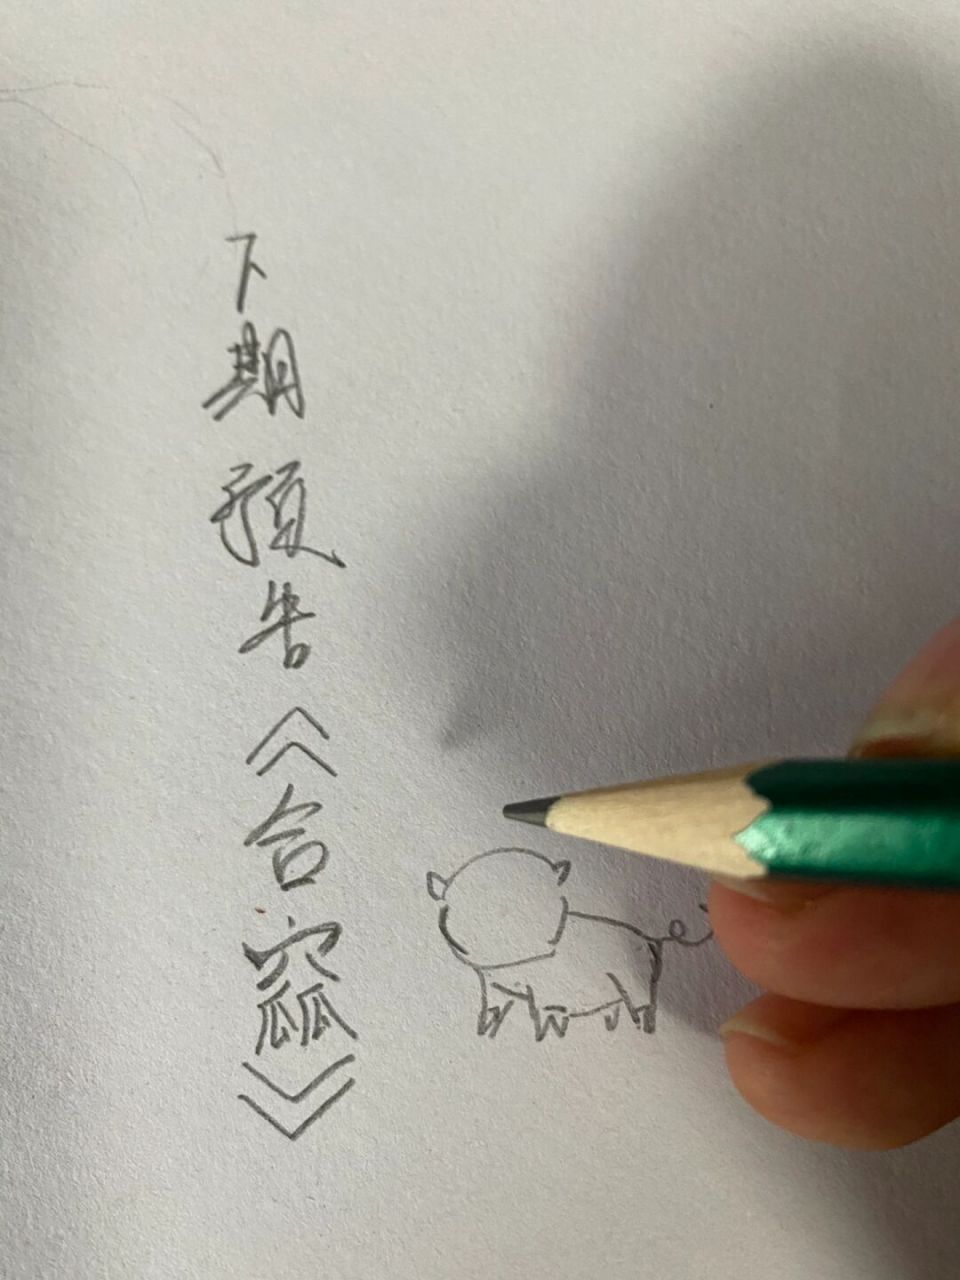 下期预告《合窳》